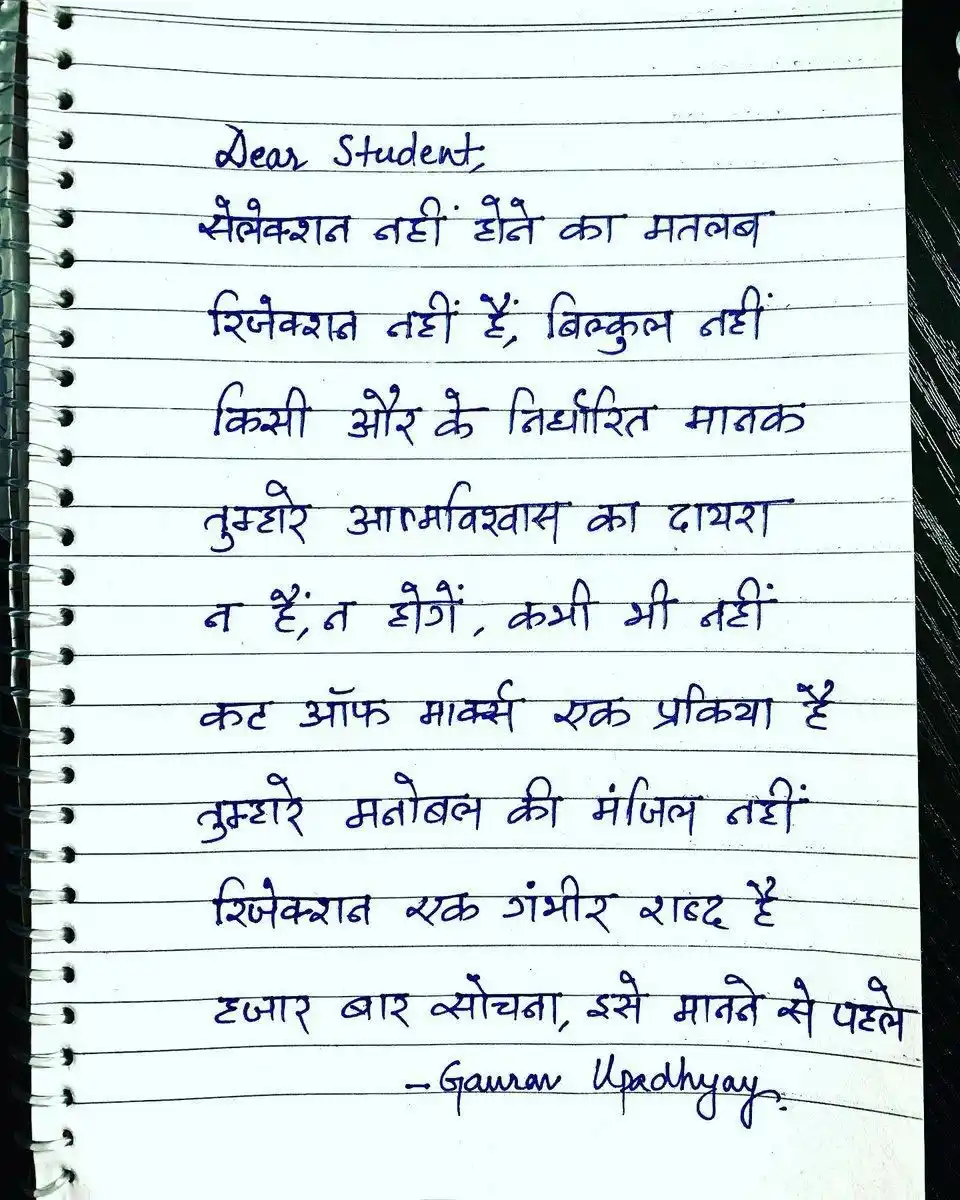 Dear Student,
सेलेक्शन नहीं होने का मतलब
रिजेक्शन नहीं हैं, बिल्कुल नहीं
किसी और के निर्धारित मानक
तुम्हारे आत्मविश्वास का दायरा
न हैं, न होगें, कभी भी नहीं
कट ऑफ मार्क्स एक प्रकिया है
तुम्हारे मनोबल की मंजिल नहीं
रिजेक्शन एक गंभीर शब्द है
हजार बार सोचना, इसे मानने से पहले
- Gaurav Upadhyay.